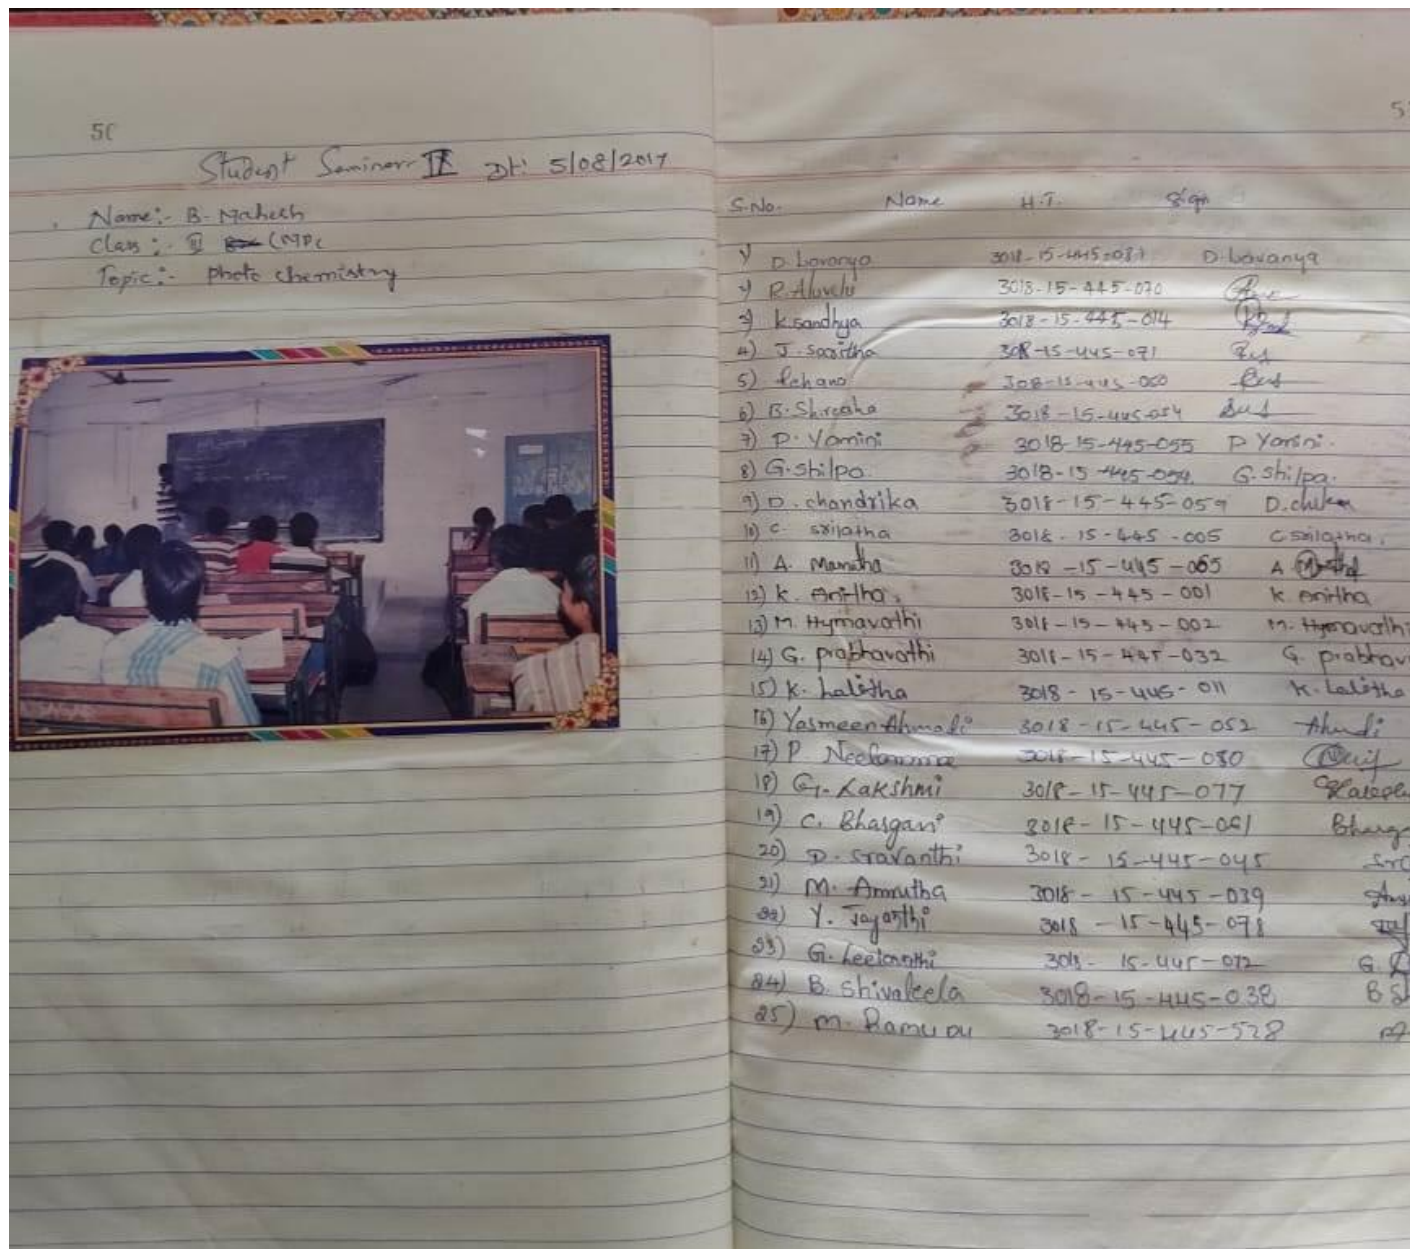 50
Student Seminar II Dt: 5/08/2017
Name:- B. Mahesh
Class :- III (MPC
Topic:- Photo chemistry
S.No. Name H.T. Sign
1) D. Lavanya 3018-15-445-031 D. Lavanya
2) R. Aluvelu 3018-15-445-070
3) K. Sandhya 3018-15-445-014
4) J. Saritha 308-15-445-071
5) 308-15-445-050
6) B. Shireesha 3018-15-445-054
7) P. Yamini 3018-15-445-055 P Yamini.
8) G. Shilpa 3018-15-445-054 G. Shilpa.
9) D. chandrika 3018-15-445-059
10) C. Srilatha 3018-15-445-005 C Srilatha.
11) A. Mamtha 3018-15-445-065 A
12) K. Anitha. 3018-15-445-001 K. Anitha
13) M. Hymavathi 3018-15-445-002 M. Hymavathi
14) G. prabhavathi 3018-15-445-032 G. prabhav
15) K. Lalitha 3018-15-445-011 K. Lalitha
16) Yasmeen Ahmadi 3018-15-445-052 Ahmdi
17) P Neelamma 3018-15-445-080
18) G. Lakshmi 3018-15-445-077
19) C. Bhargavi 3018-15-445-061 Bharga
20) D. Sravanthi 3018-15-445-045
21) M. Amrutha 3018-15-445-039
22) Y. Jayanthi 3018-15-445-078
23) G. 3018-15-445-072 G.
24) B. Shivaleela 3018-15-445-038 B S
25) M. Ramudu 3018-15-445-528